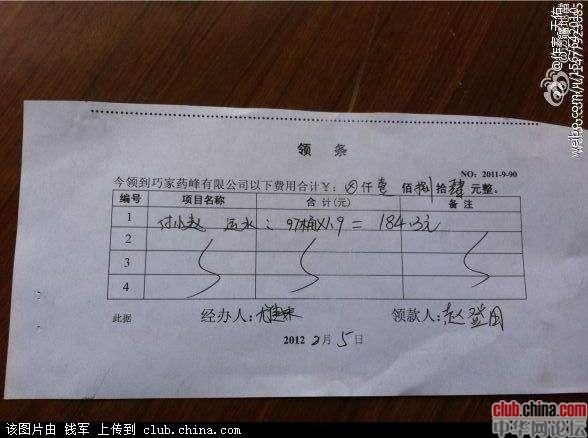 领 条
NO: 2011-9-90
今领到巧家药峰有限公司以下费用合计￥: ⊗仟壹佰捌拾肆元整。
编号 项目名称 合 计(元) 备 注
1 付小赵 运水: 97桶×1.9 = 184.3元
2
3
4
此据 经办人: 领款人: 赵登用
2012 2月 5日
@作家-天佑
weibo.com/u/
该图片由 钱军 上传到 club.china.com
club.china.com
中华网论坛